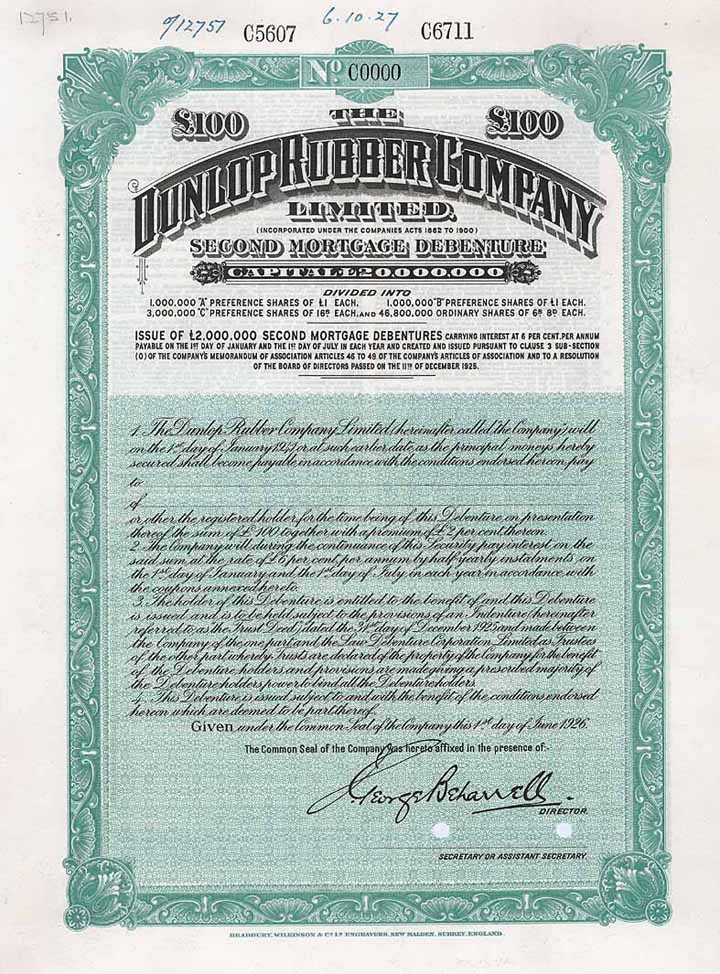 12751.
o/12751 C5607 6.10.27 C6711
No C0000
£100 THE £100
DUNLOP RUBBER COMPANY
LIMITED.
(INCORPORATED UNDER THE COMPANIES ACTS 1862 TO 1900)
SECOND MORTGAGE DEBENTURE
CAPITAL £20.000.000
DIVIDED INTO
1,000,000 "A" PREFERENCE SHARES OF £1 EACH, 1,000,000 "B" PREFERENCE SHARES OF £1 EACH.
3,000,000 "C" PREFERENCE SHARES OF 16s EACH, AND 46,800,000 ORDINARY SHARES OF 6s 8d EACH.
ISSUE OF £2,000,000 SECOND MORTGAGE DEBENTURES CARRYING INTEREST AT 6 PER CENT. PER ANNUM
PAYABLE ON THE 1ST DAY OF JANUARY AND THE 1ST DAY OF JULY IN EACH YEAR AND CREATED AND ISSUED PURSUANT TO CLAUSE 3 SUB-SECTION
(O) OF THE COMPANY'S MEMORANDUM OF ASSOCIATION ARTICLES 46 TO 49 OF THE COMPANY'S ARTICLES OF ASSOCIATION AND TO A RESOLUTION
OF THE BOARD OF DIRECTORS PASSED ON THE 11TH OF DECEMBER 1925.
1. The Dunlop Rubber Company Limited (hereinafter called "the Company") will
on the 1st day of January 1947 or at such earlier date as the principal moneys hereby
secured shall become payable in accordance with the conditions endorsed hereon, pay
to
of
or other the registered holder for the time being of this Debenture, on presentation
thereof the sum of £100 together with a premium of £2 per cent. thereon.
2. The Company will during the continuance of this Security pay interest on the
said sum at the rate of £6 per cent. per annum by half-yearly instalments on
the 1st day of January and the 1st day of July in each year in accordance with
the coupons annexed hereto.
3. The holder of this Debenture is entitled to the benefit of and this Debenture
is issued and is to be held subject to the provisions of an Indenture (hereinafter
referred to as the Trust Deed) dated the day of December 1925 and made between
the Company of the one part and the Law Debenture Corporation Limited as Trustees
of the other part whereby Trusts are declared of the property of the Company for the benefit
of the Debenture holders and provisions are made giving a prescribed majority of
the Debenture holders power to bind all the Debenture holders.
4. This Debenture is issued subject to and with the benefit of the conditions endorsed
hereon which are deemed to be part thereof.
Given under the Common Seal of the Company this 1st day of June 1926.
The Common Seal of the Company was hereto affixed in the presence of:-
J. George Beharrell.
DIRECTOR.
SECRETARY OR ASSISTANT SECRETARY.
BRADBURY, WILKINSON & Co Ld ENGRAVERS, NEW MALDEN, SURREY, ENGLAND.